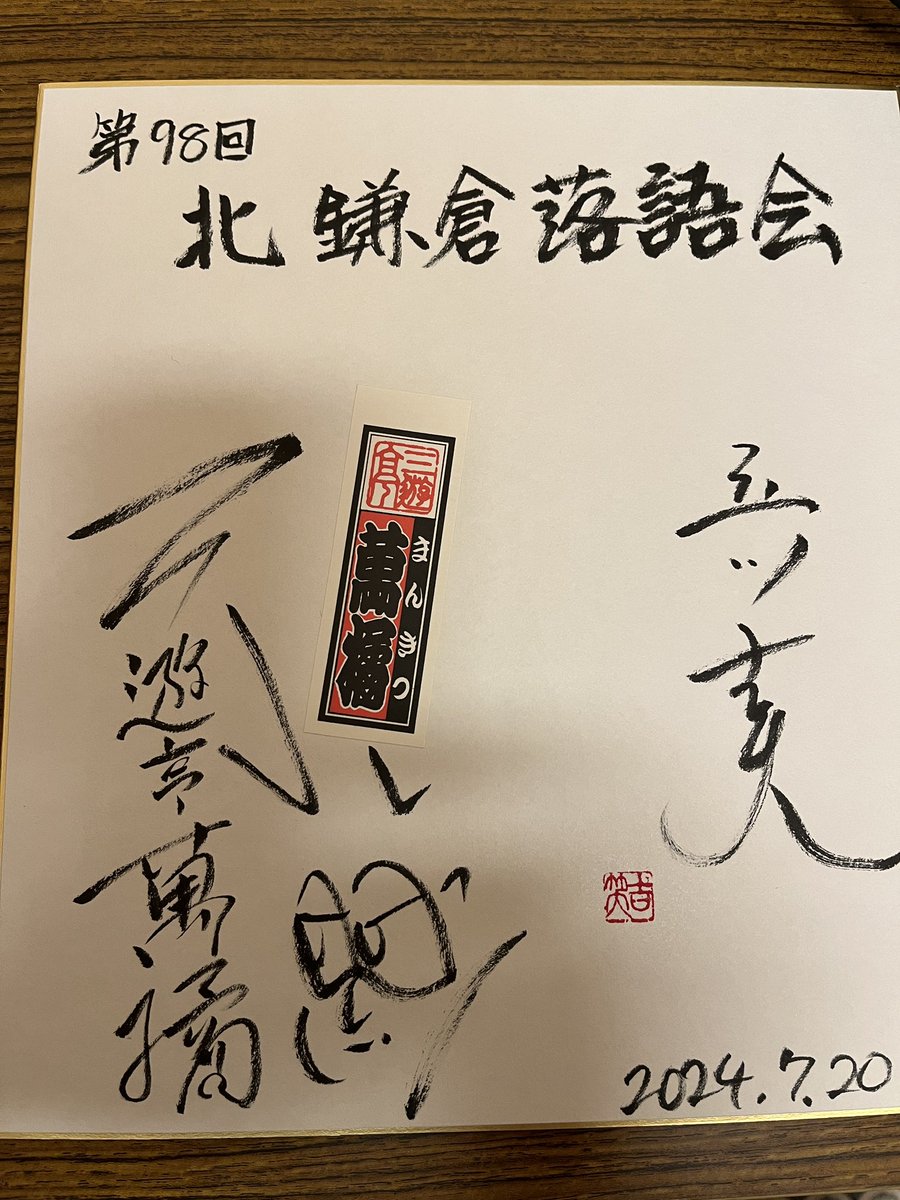 第98回
北鎌倉落語会
立川吉笑
吉笑
三遊亭
萬橘
まんきつ
三遊亭萬橘
2024.7.20